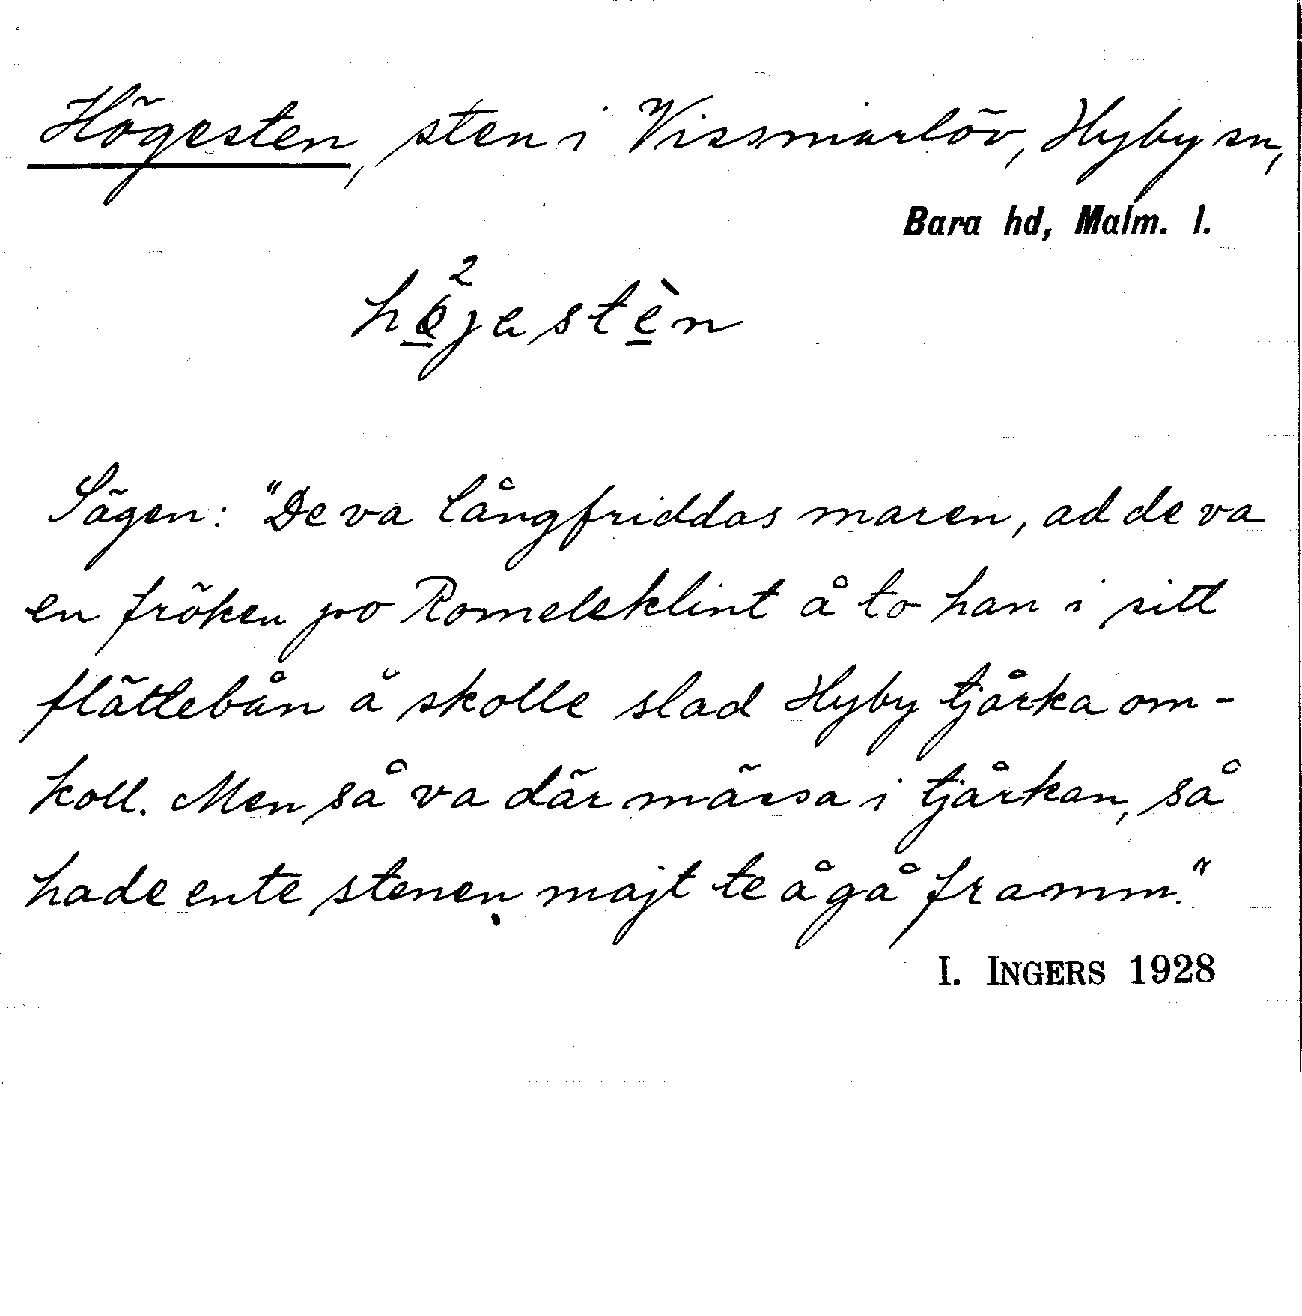 Högesten, sten i Vissmarlöv, Hyby sn,
Bara hd, Malm. l.
hö²jastèn
Sägen: "De va långfriddas maren, ad de va
en fröken po Romeleklint å to han i sitt
flättebån å skolle slad Hyby tjårka om-
koll. Men så va där mässa i tjårkan, så
hade ente stenen majt te å gå framm."
I. INGERS 1928